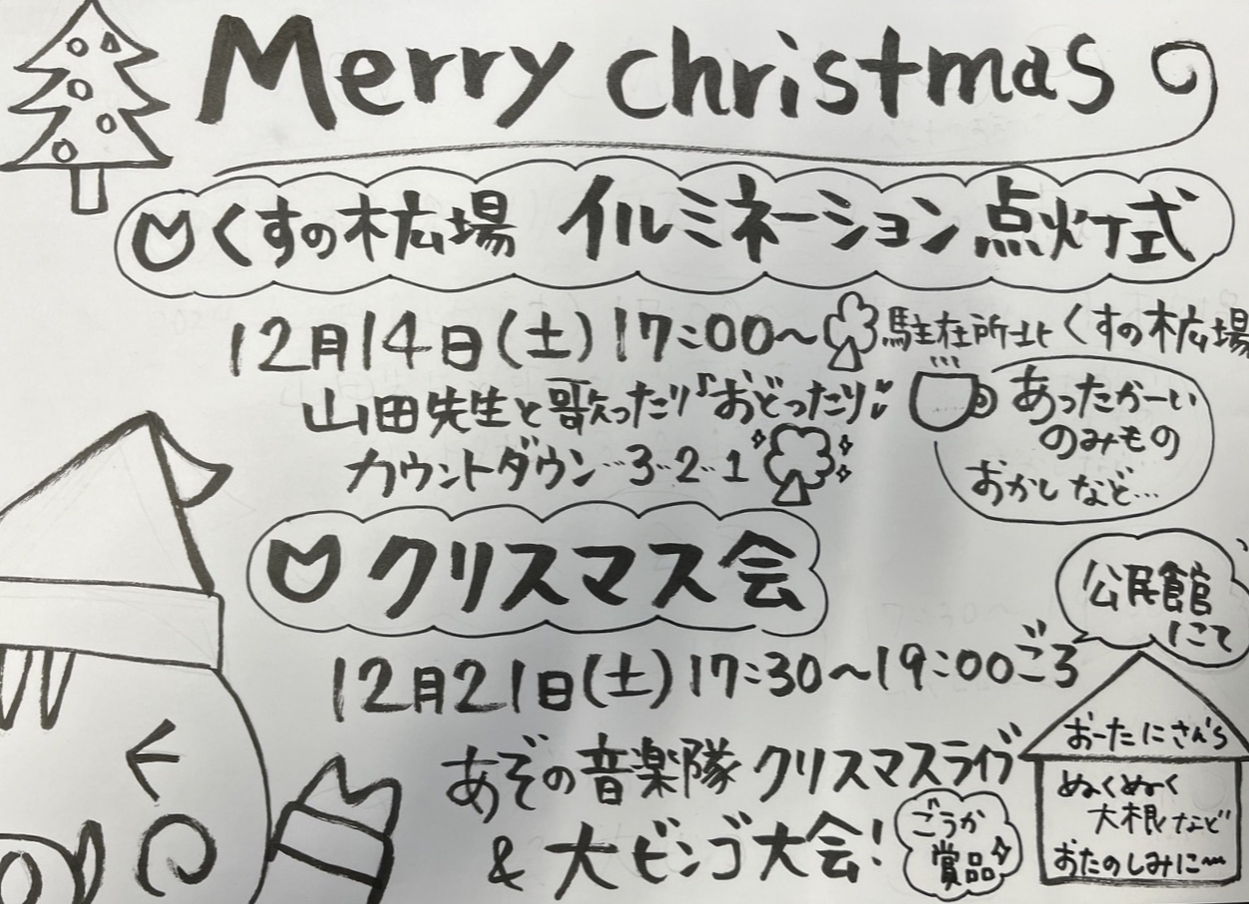 Merry christmas
くすの木広場 イルミネーション 点灯式
12月14日(土) 17:00〜 駐在所北 くすの木広場
山田先生と歌ったり♪おどったり
カウントダウン…3‥2‥1
あったかーい
のみもの
おかしなど…
クリスマス会
公民館
にて
12月21日(土) 17:30〜19:00ごろ
あぞの音楽隊 クリスマスライブ
& 大ビンゴ大会!
ごうか
賞品
おーたにさんち
ぬくぬく
大根など
おたのしみに〜